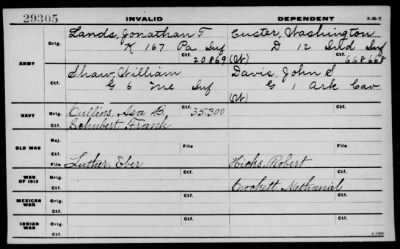 29305 INVALID DEPENDENT 3-36-2
ARMY
Orig. Lands, Jonathan T Custer, Washington
K 167 Pa Inf D 12 Ind Inf
Ctf. 20869 (W) Ctf. 66866
Orig. Shaw, William Davis, John S
G 6 Me Inf G 1 Ark Cav
Ctf. (W) Ctf.
NAVY
Orig. Cullins, Asa B. Ctf. 35300
Schubert Frank
Ctf.
OLD WAR
Rej.
File File
Ctf. Luther, Eber Hicks, Robert
WAR OF 1812
Orig. Ctf. Crockett, Nathaniel Ctf.
MEXICAN WAR
Orig.
Ctf. Ctf.
INDIAN WAR
Orig.
Ctf. Ctf.